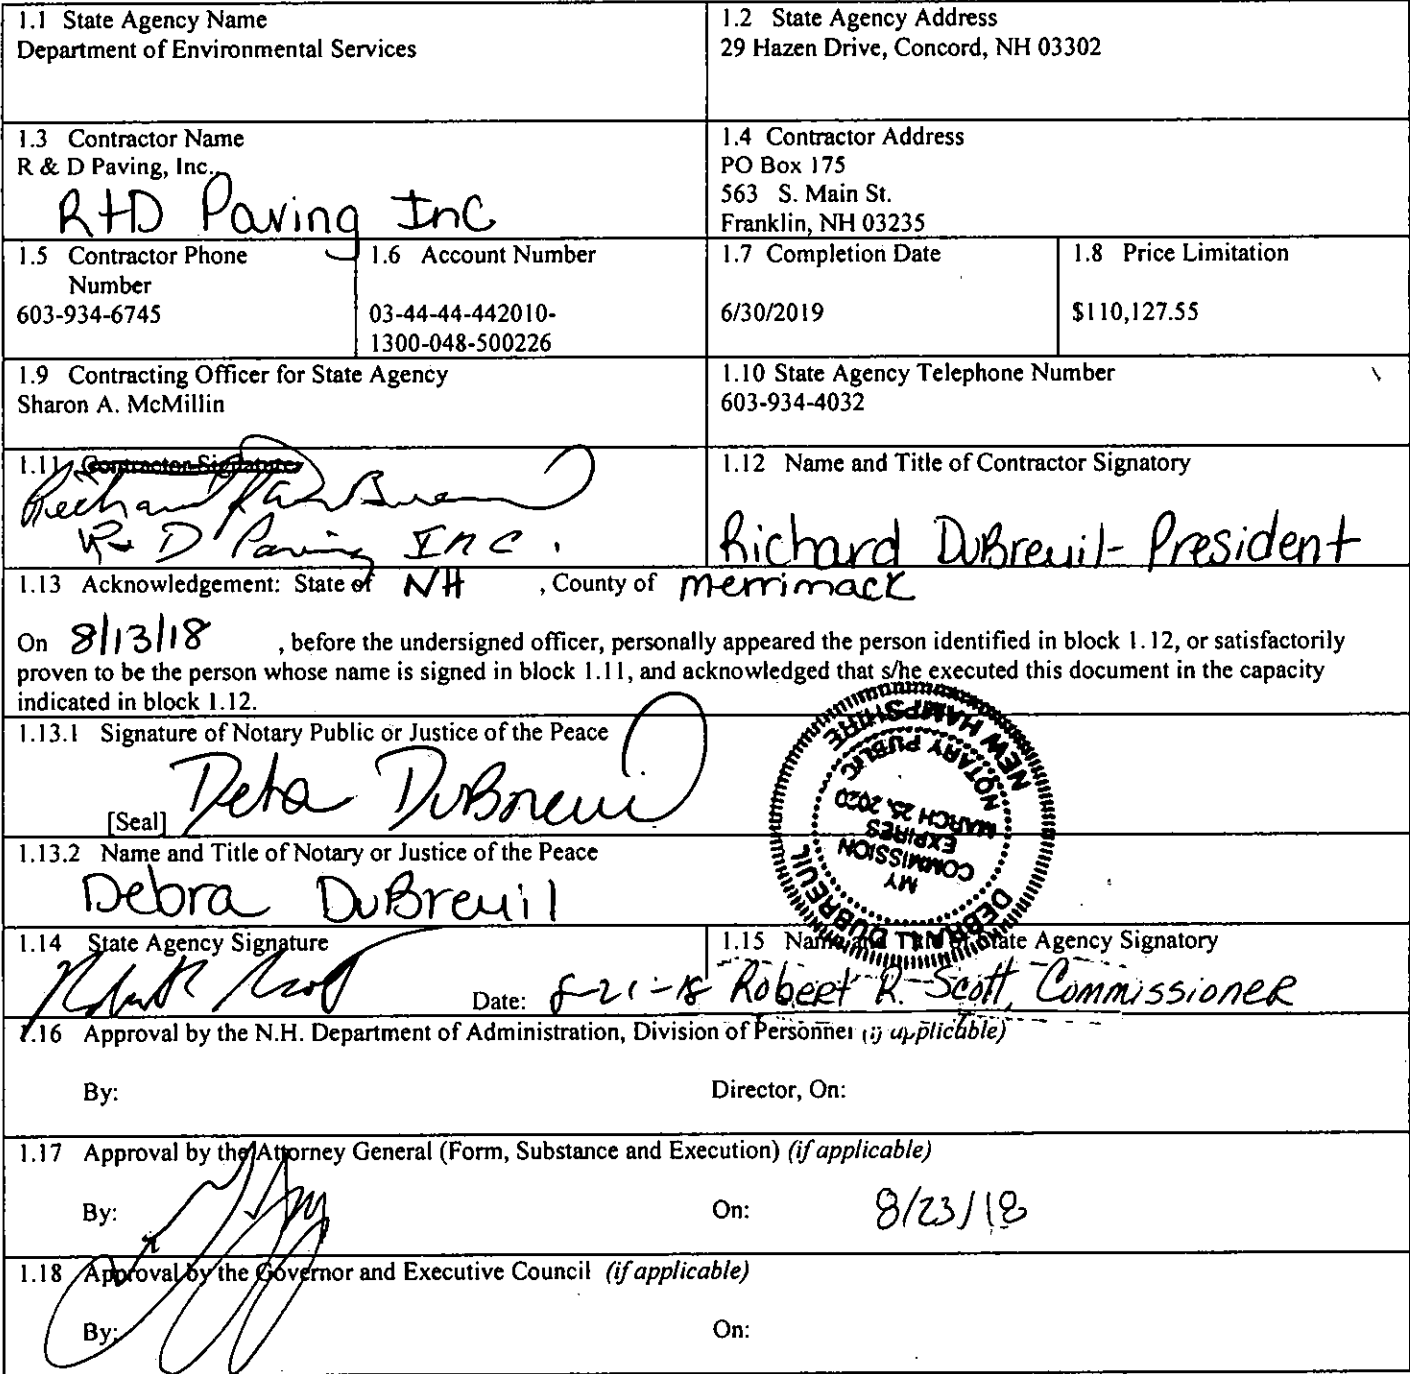 1.1 State Agency Name
Department of Environmental Services
1.2 State Agency Address
29 Hazen Drive, Concord, NH 03302
1.3 Contractor Name
R & D Paving, Inc.
R+D Paving Inc
1.4 Contractor Address
PO Box 175
563 S. Main St.
Franklin, NH 03235
1.5 Contractor Phone
Number
603-934-6745
1.6 Account Number
03-44-44-442010-
1300-048-500226
1.7 Completion Date
6/30/2019
1.8 Price Limitation
$110,127.55
1.9 Contracting Officer for State Agency
Sharon A. McMillin
1.10 State Agency Telephone Number
603-934-4032
1.11 Contractor Signature
Richard DuBreuil
R & D Paving INC.
1.12 Name and Title of Contractor Signatory
Richard DuBreuil - President
1.13 Acknowledgement: State of NH , County of Merrimack
On 8/13/18 , before the undersigned officer, personally appeared the person identified in block 1.12, or satisfactorily
proven to be the person whose name is signed in block 1.11, and acknowledged that s/he executed this document in the capacity
indicated in block 1.12.
1.13.1 Signature of Notary Public or Justice of the Peace
Deba DuBreuil
[Seal]
DEBRA L DUBREUIL
MY
COMMISSION
EXPIRES
MARCH 25, 2020
NOTARY PUBLIC
NEW HAMPSHIRE
1.13.2 Name and Title of Notary or Justice of the Peace
Debra DuBreuil
1.14 State Agency Signature
Robert R Scott
Date: 8-21-18
1.15 Name and Title of State Agency Signatory
Robert R. Scott, Commissioner
1.16 Approval by the N.H. Department of Administration, Division of Personnel (if applicable)
By:
Director, On:
1.17 Approval by the Attorney General (Form, Substance and Execution) (if applicable)
By:
On: 8/23/18
1.18 Approval by the Governor and Executive Council (if applicable)
By:
On: